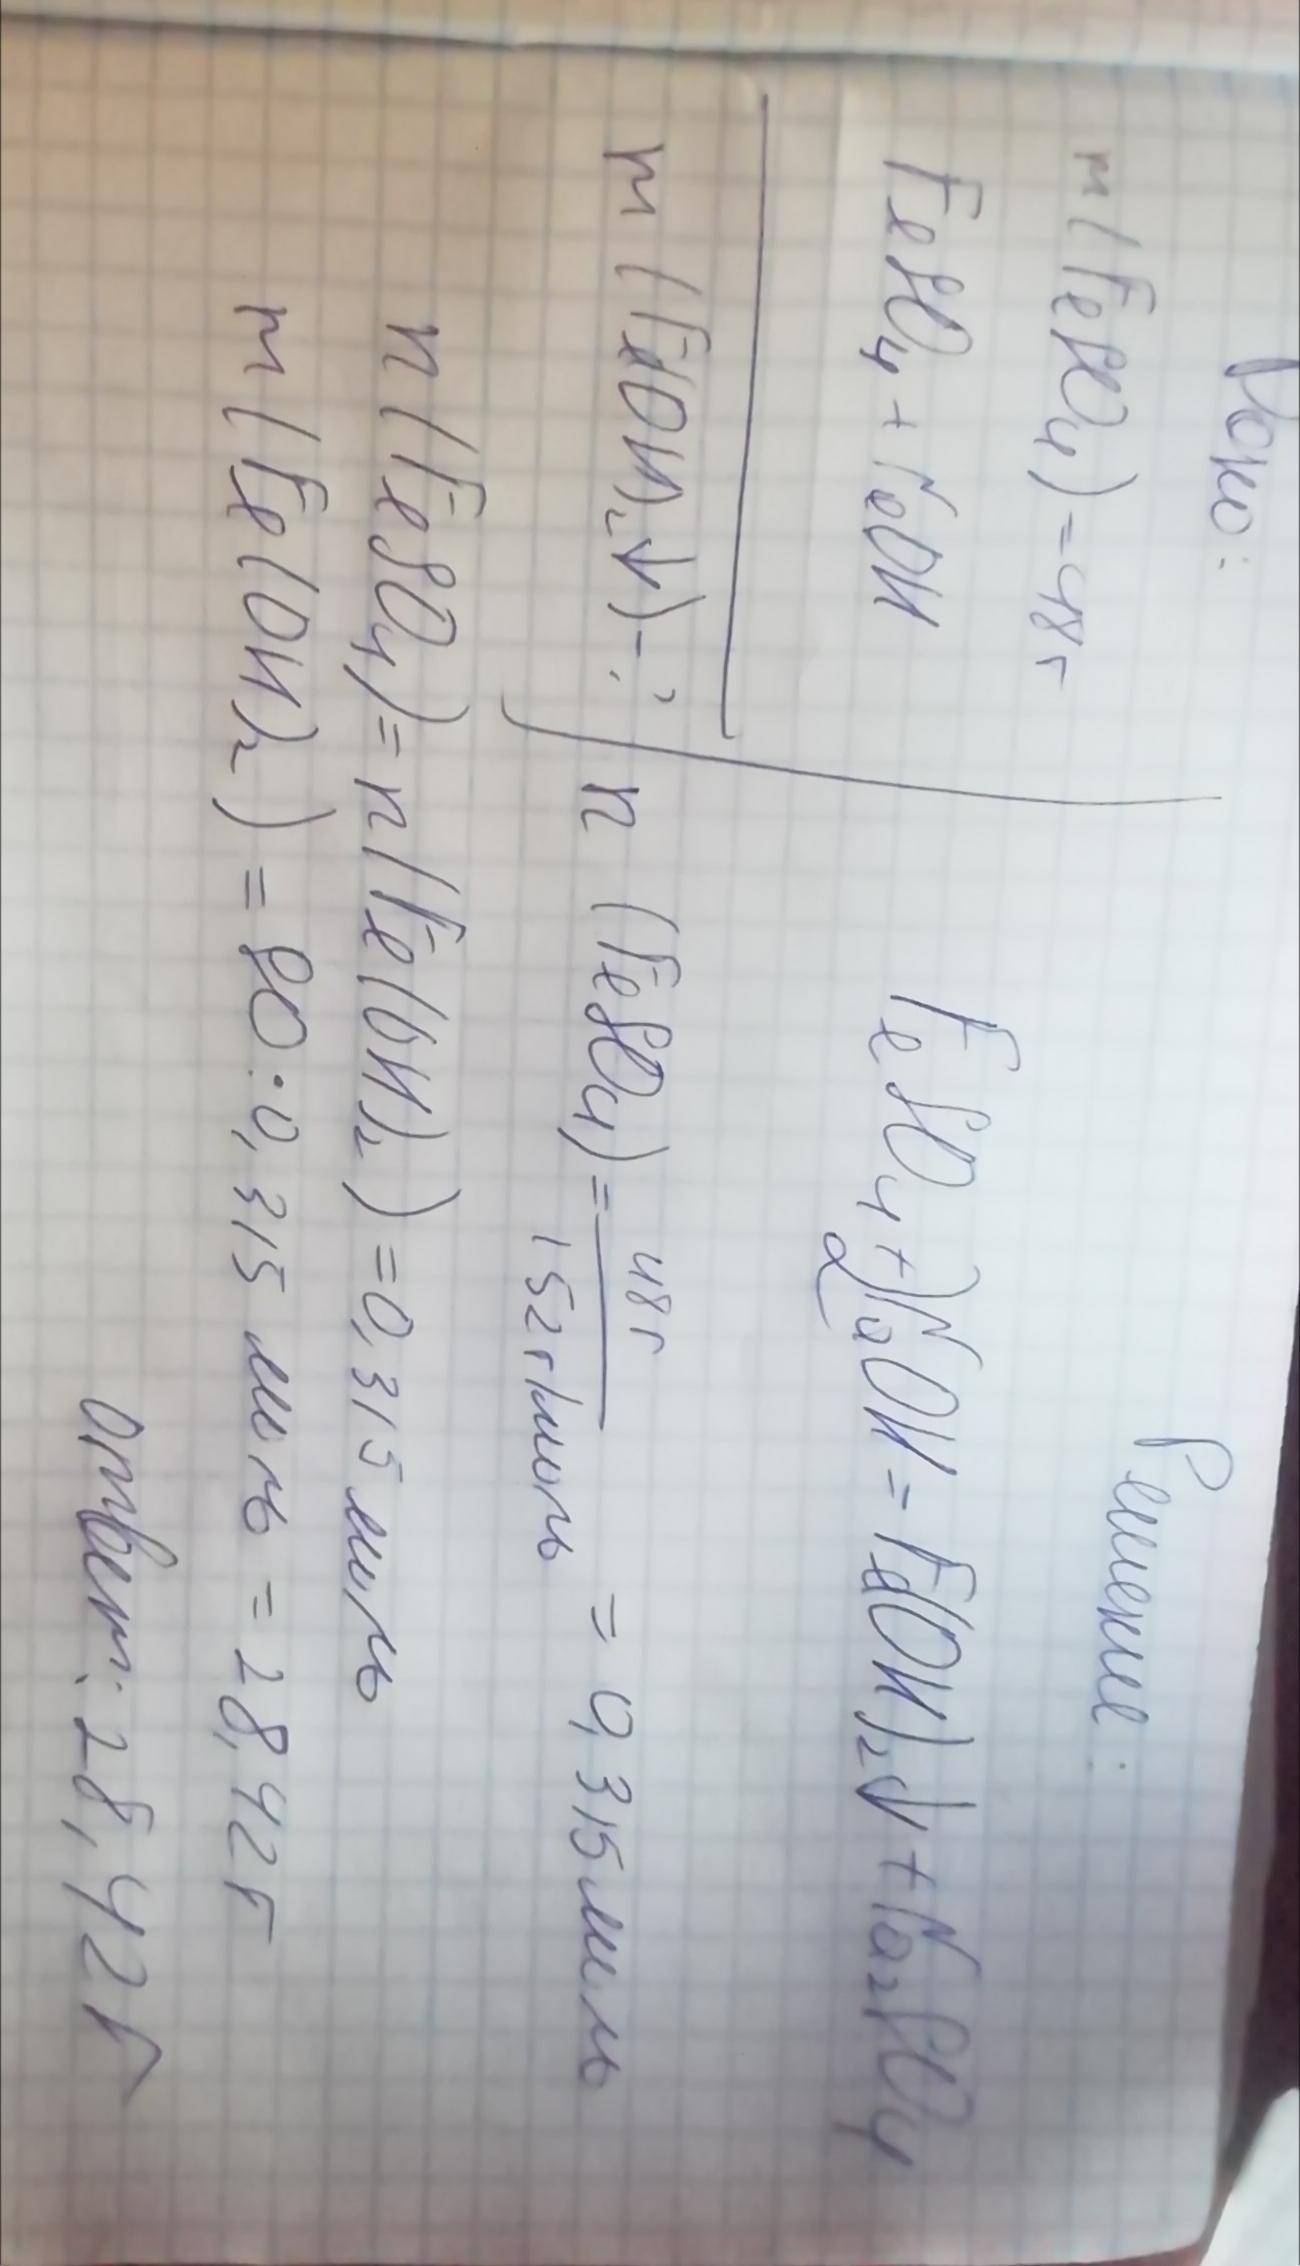 Дано:
m(FeSO₄)=48г
FeSO₄ + NaOH
m(Fe(OH)₂↓)-?
Решение:
FeSO₄+2NaOH=Fe(OH)₂↓+Na₂SO₄
n (FeSO₄) = 48г / 152г/моль = 0,315моль
n(FeSO₄)=n(Fe(OH)₂)=0,315моль
m(Fe(OH)₂)=90:0,315 моль = 28,42г
Ответ: 28,42г